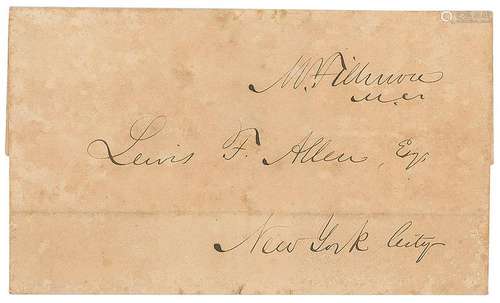 M. Fillmore
M.C.
Lewis F. Allen, Esq.
New York City